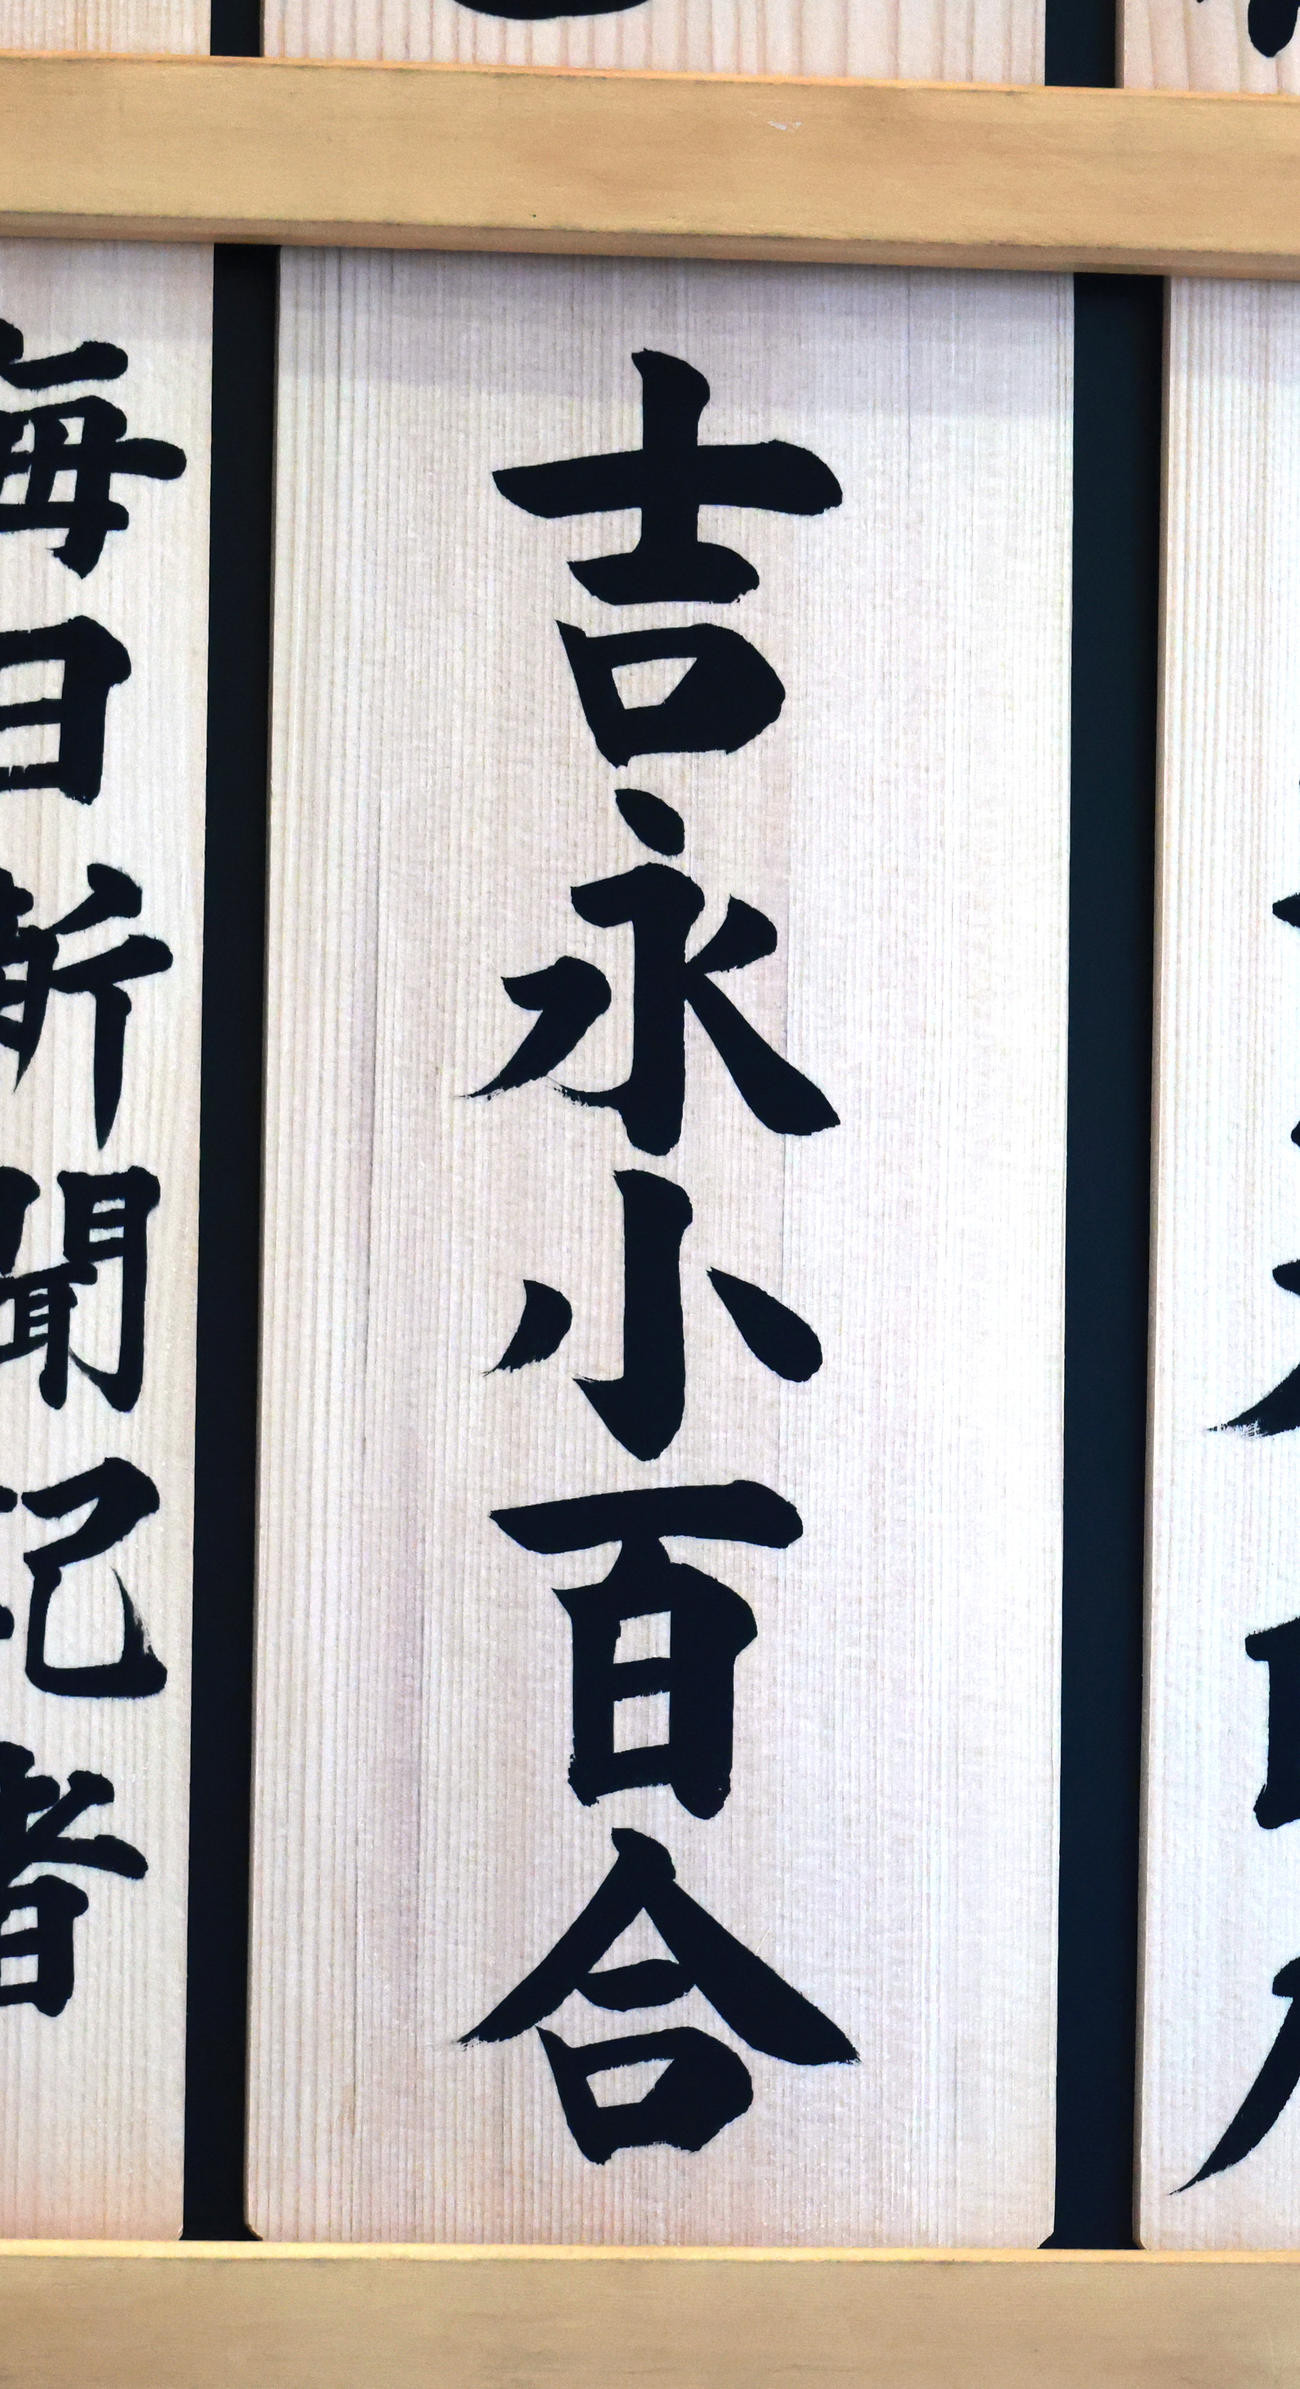 吉永小百合
毎日新聞記者